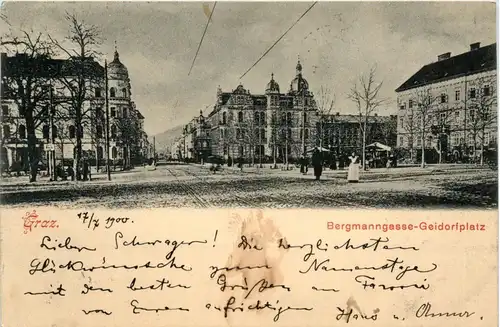 Graz. 17/7 1900. Bergmanngasse-Geidorfplatz
Lieber Schwager! die herzlichsten
Glückwünsche zum Namenstage
mit den besten Grüßen an
von Euren aufrichtigen Hans u. Anna.